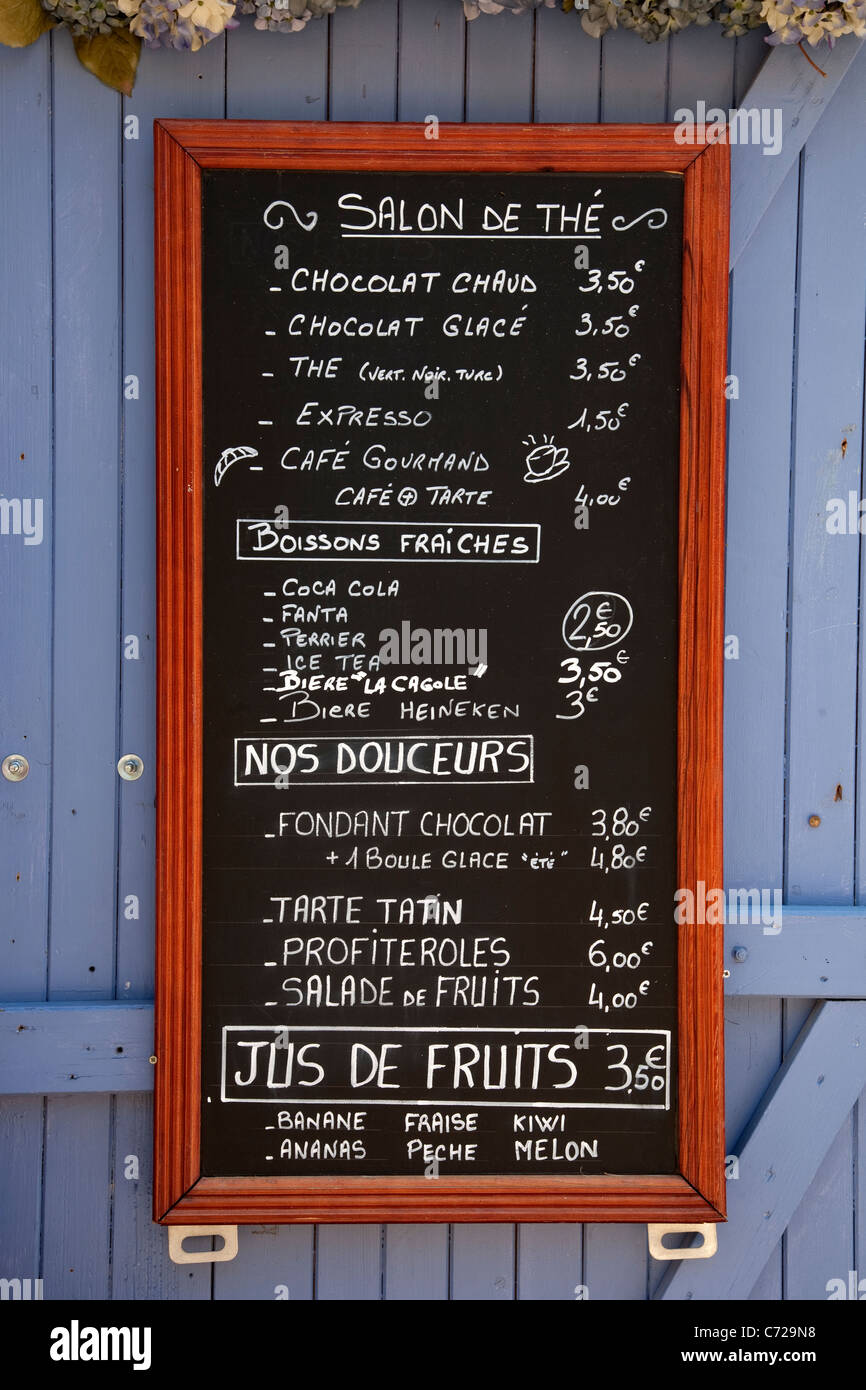 SALON DE THÉ
- CHOCOLAT CHAUD 3,50€
- CHOCOLAT GLACÉ 3,50€
- THE (VERT. NOIR. TURC) 3,50€
- EXPRESSO 1,50€
- CAFÉ GOURMAND
CAFÉ + TARTE 4,00€
BOISSONS FRAiCHES
- COCA COLA
- FANTA 2,50€
- PERRIER
- ICE TEA 3,50€
- BIERE "LA CAGOLE"
- BIERE HEINEKEN 3€
NOS DOUCEURS
- FONDANT CHOCOLAT 3,80€
+ 1 BOULE GLACE "ÉTÉ" 4,80€
- TARTE TATIN 4,50€
- PROFITEROLES 6,00€
- SALADE DE FRUITS 4,00€
JUS DE FRUITS 3,50€
- BANANE FRAISE KIWI
- ANANAS PECHE MELON
alamy
a
a
alamy
Image ID: C729N8
www.alamy.com